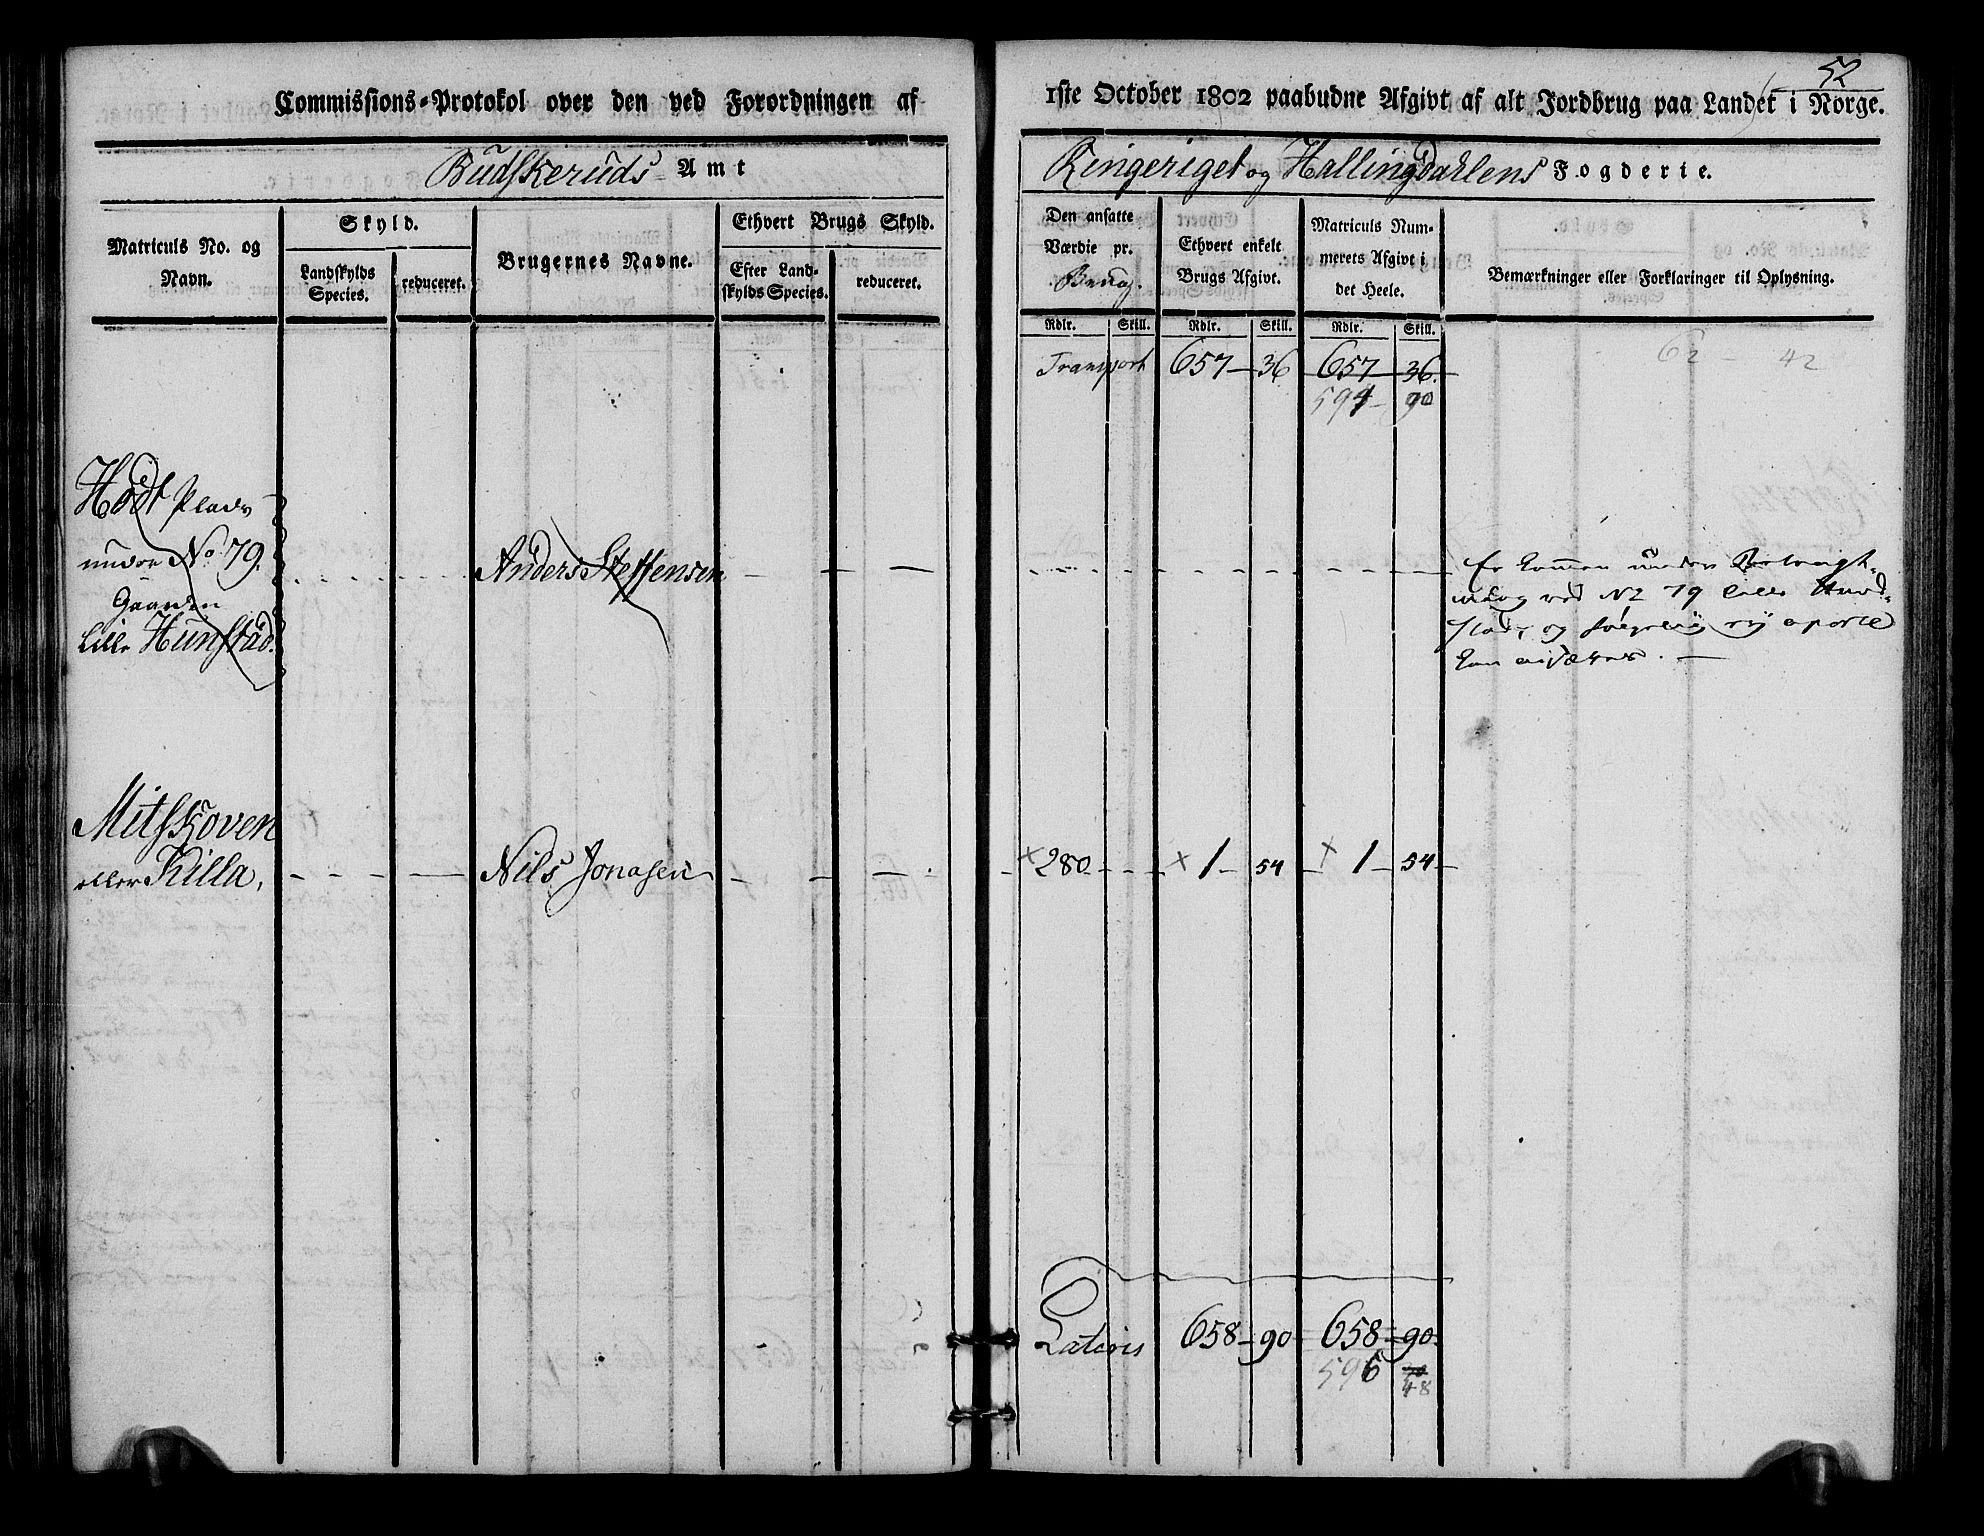 52
Commissions-Protokol over den ved Forordningen af 1ste October 1802 paabudne Afgivt af alt Jordbrug paa Landet i Norge.
Budskeruds Amt
Ringeriget og Hallingdahlens Fogderie.
Matriculs No. og Navn.
Skyld.
Landskylds Species.
reduceret.
Brugernes Navne.
Ethvert Brugs Skyld.
Efter Landskylds Species.
reduceret.
Den ansatte Værdie pr. Brug.
Ethvert enkelt Brugs Afgivt.
Matriculs Nummerets Afgivt i det Heele.
Bemærkninger eller Forklaringer til Oplysning.
Rdlr. Skill. Rdlr. Skill. Rdlr. Skill.
Transport 657 36 657 36. 62 - 42
594 90
Hødt Plads
under No 79.
Gaarden
Lille Hunstad.
Anders Steffensen
Er kommen under
ved No 79 Lille Hund-
stad, og følgelig ej aparte
kan ansættes.
Mitskoven
eller Killa,
Nils Jonasen
280 1 54 1 54
Lateris 658 90 658 90
596 48